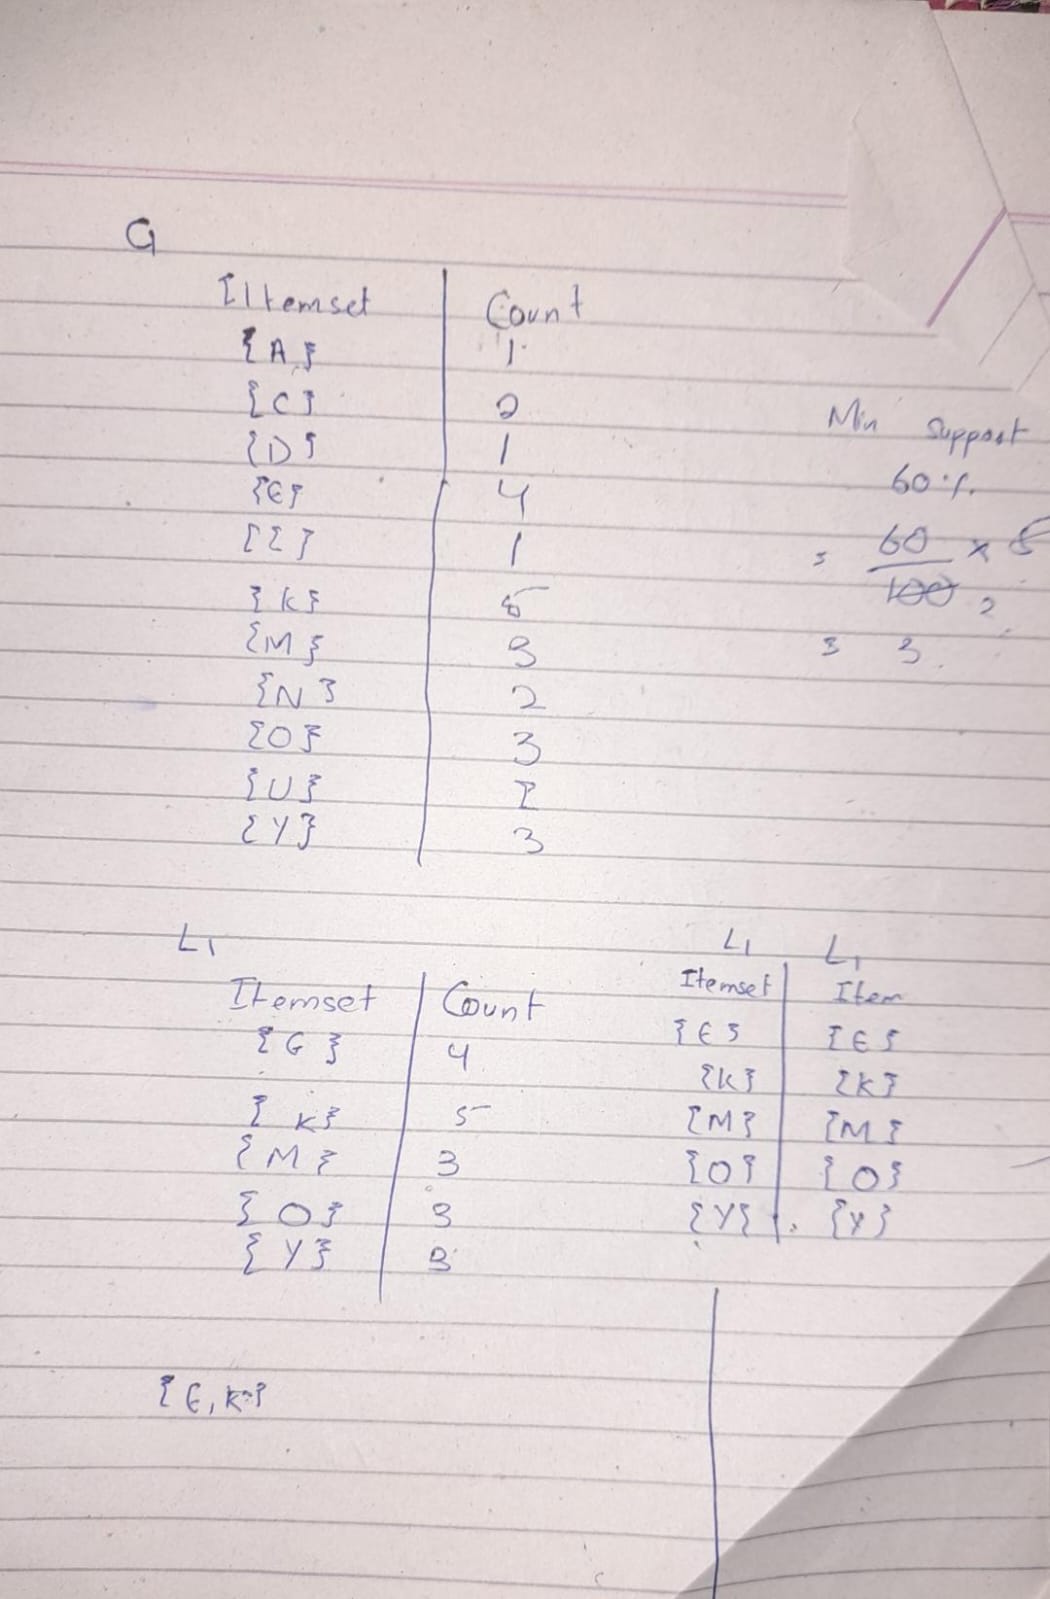 C1
Itemset Count
{A} 1
{C} 2
{D} 1
{E} 4
{I} 1
{K} 5
{M} 3
{N} 2
{O} 3
{U} 1
{Y} 3
Min Support
60%
= 60/100 × 5
= 3.
L1
Itemset Count
{E} 4
{K} 5
{M} 3
{O} 3
{Y} 3
L1 L1
Itemset Item
{E} {E}
{K} {K}
{M} {M}
{O} {O}
{Y} {Y}
{E, K}